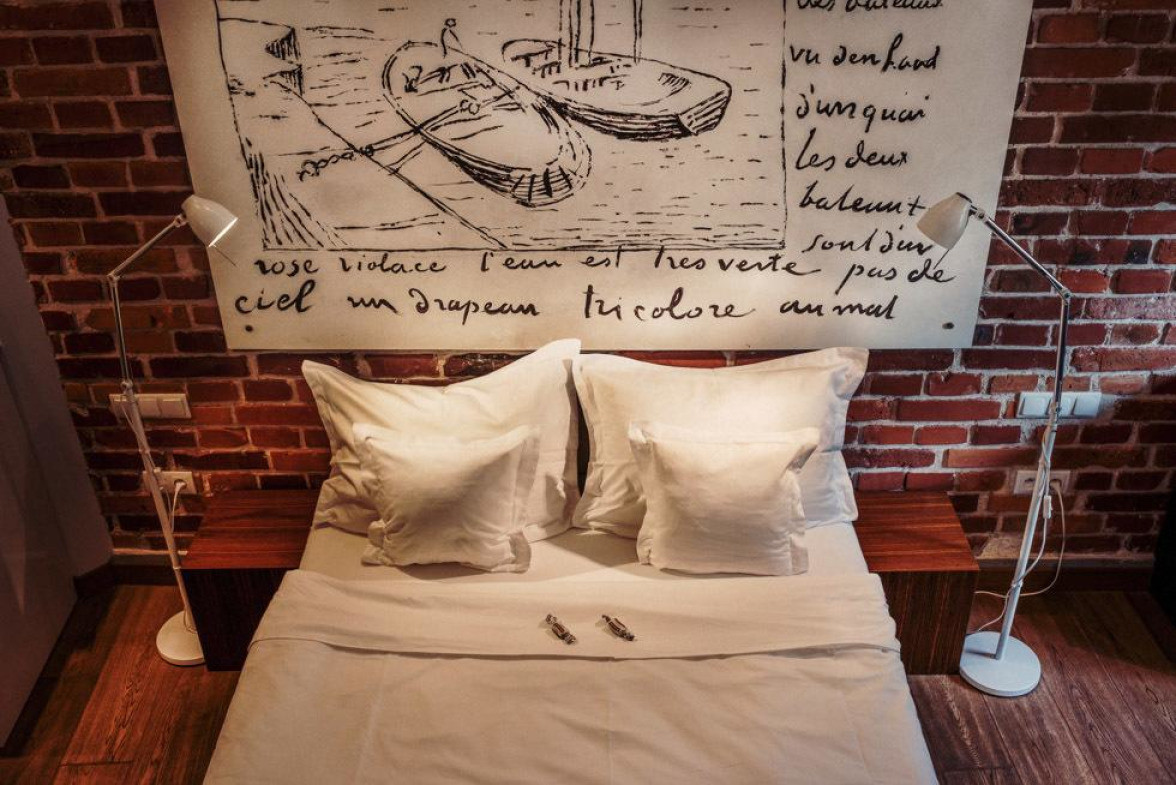 des bateaux
vu den haut
d'un quai
les deux
bateaunt
sont d'un
rose violace l'eau est tres verte pas de
ciel un drapeau tricolore au mat